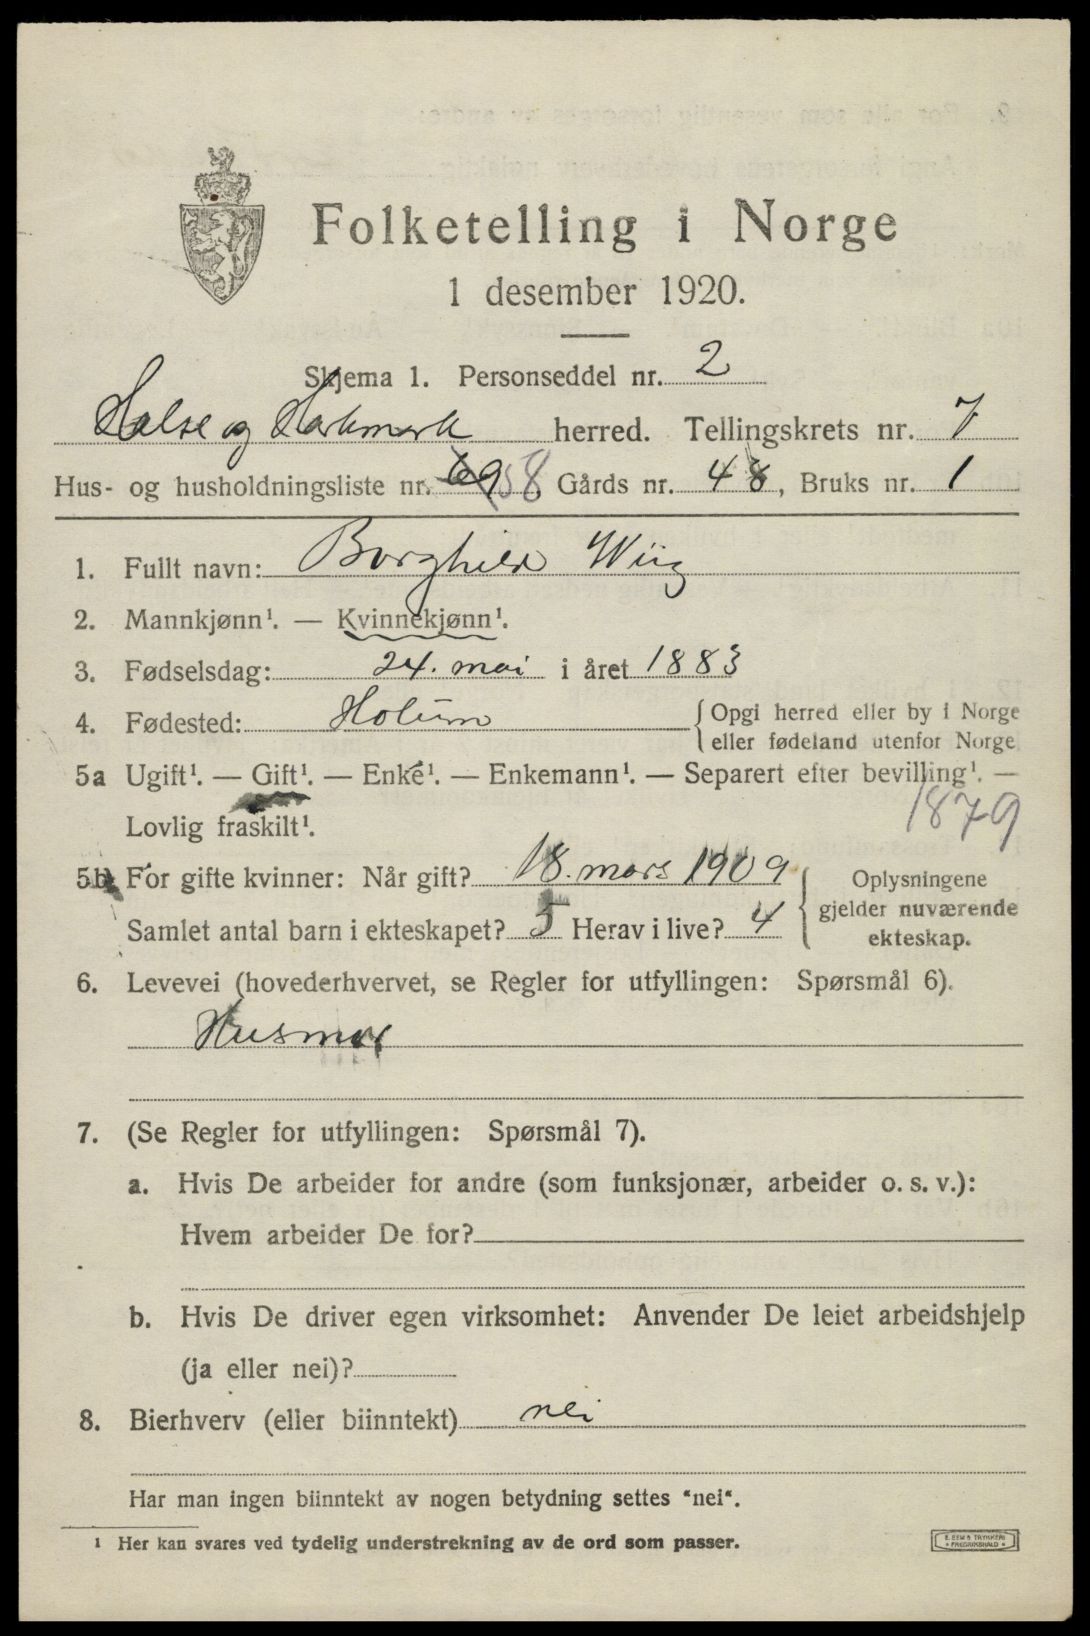 Folketelling i Norge
1 desember 1920.
Skjema 1. Personseddel nr. 2
Halse og Harkmark herred. Tellingskrets nr. 7
Hus- og husholdningsliste nr. 69 58, Gårds nr. 48, Bruks nr. 1
1. Fullt navn: Borghild Wiig
2. Mannkjønn¹. — Kvinnekjønn¹.
3. Fødselsdag: 24. mai i året 1883
4. Fødested: Holum { Opgi herred eller by i Norge
eller fødeland utenfor Norge
5a Ugift¹. — Gift¹. — Enke¹. — Enkemann¹. — Separert efter bevilling¹. —
Lovlig fraskilt¹.
1879
5b For gifte kvinner: Når gift? 18. mars 1909
Samlet antal barn i ekteskapet? 5 Herav i live? 4
{ Oplysningene
gjelder nuværende
ekteskap.
6. Levevei (hovederhvervet, se Regler for utfyllingen: Spørsmål 6).
Husmor
7. (Se Regler for utfyllingen: Spørsmål 7).
a. Hvis De arbeider for andre (som funksjonær, arbeider o. s. v.):
Hvem arbeider De for?
b. Hvis De driver egen virksomhet: Anvender De leiet arbeidshjelp
(ja eller nei)?
8. Bierhverv (eller biinntekt) nei
Har man ingen biinntekt av nogen betydning settes "nei".
1 Her kan svares ved tydelig understrekning av de ord som passer.
TRYKKERI
FREDRIKSHALD